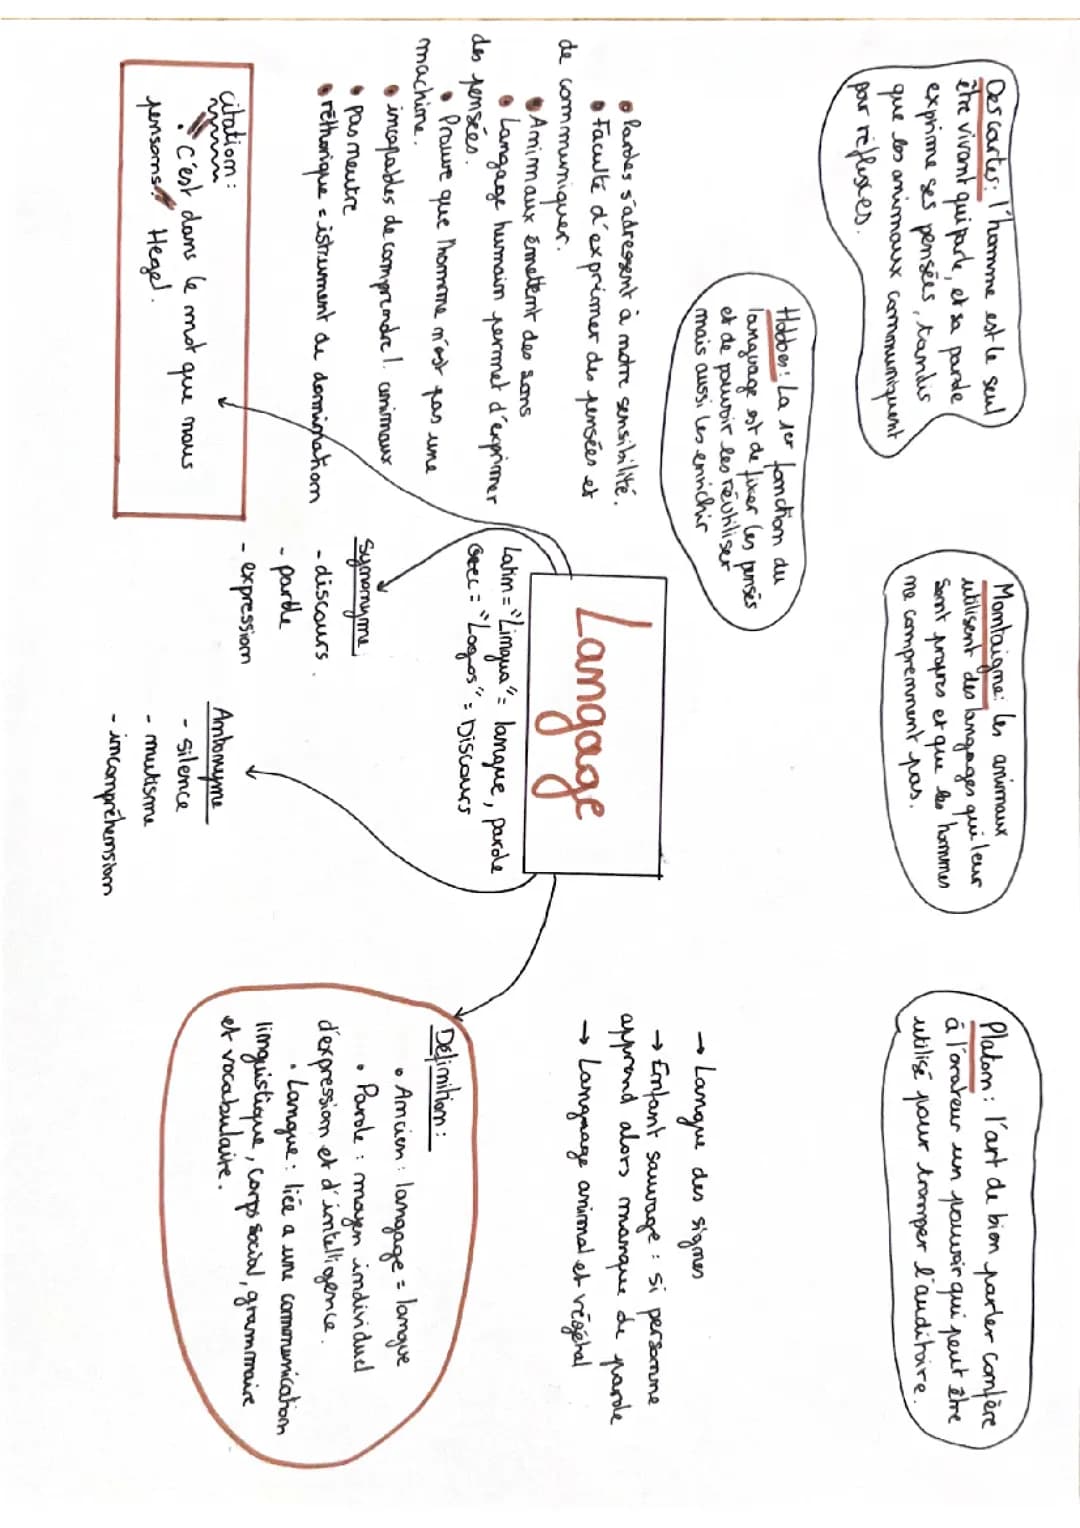 Descartes: l'homme est le seul
être vivant qui parle, et sa parole
exprime ses pensées, tandis
que les animaux communiquent
par réflexes.
Montaigne: les animaux
utilisent des langages qui leur
sont propres et que les hommes
ne comprennent pas.
Platon: l'art de bien parler confère
à l'orateur un pouvoir qui peut être
utilisé pour tromper l'auditoire.
Hobbes: La 1er fonction du
language est de fixer les pensés
et de pouvoir les réutiliser
mais aussi les enrichir
• Paroles s'adressent à notre sensibilité.
• Faculté d'exprimer des pensées et
de communiquer.
• Animaux émettent des sons
• Langage humain permet d'exprimer
des pensées.
• Prouve que l'homme n'est pas une
machine.
• incapables de comprendre l. animaux
• pas neutre
• réthorique = istrument de domination
Langage
Latin = "Lingua" = langue, parole
Grec = "Logos" = Discours
→ Langue des signes
→ Enfant sauvage : si personne
apprend alors manque de parole
→ Language animal et végétal
citation:
• "C'est dans le mot que nous
pensons" Hegel.
Synonyme
- discours.
- parole
- expression
Antonyme
- silence
- mutisme
- incompréhension
Définition:
• Ancien: langage = langue
• Parole: moyen individuel
d'expression et d'intelligence.
• Langue: liée a une communication
linguistique, corps social, grammaire
et vocabulaire.